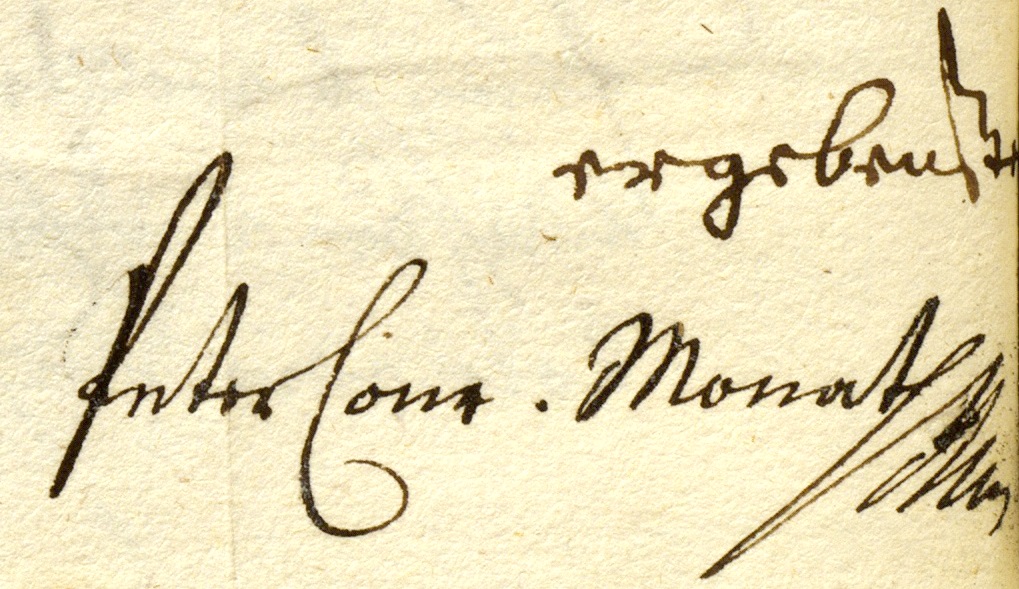 ergebenste
Peter Conr. Monath